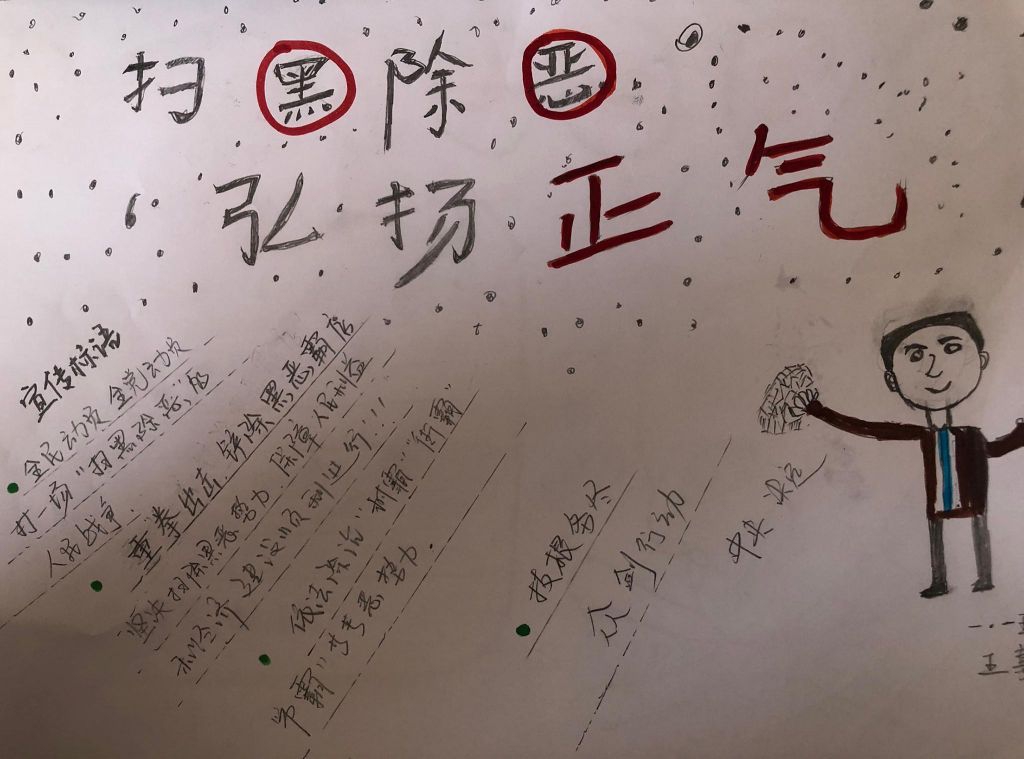 扫黑除恶
弘扬正气
宣传标语
全民动员 全党动员
打一场"扫黑除恶"的
人民战争.
重拳出击 铲除黑恶霸店
坚决扫除黑恶势力 保障人民利益
建议
行!!!
依法 "村霸""街霸"
"市霸" 恶势力.
拔根务尽
众 剑行动
中央决定